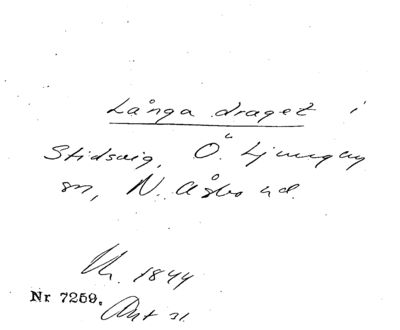 Långa draget i
Stidsvig, Ö. Ljungby
sn, N. Åsbo hd.
1844
Nr 7259.